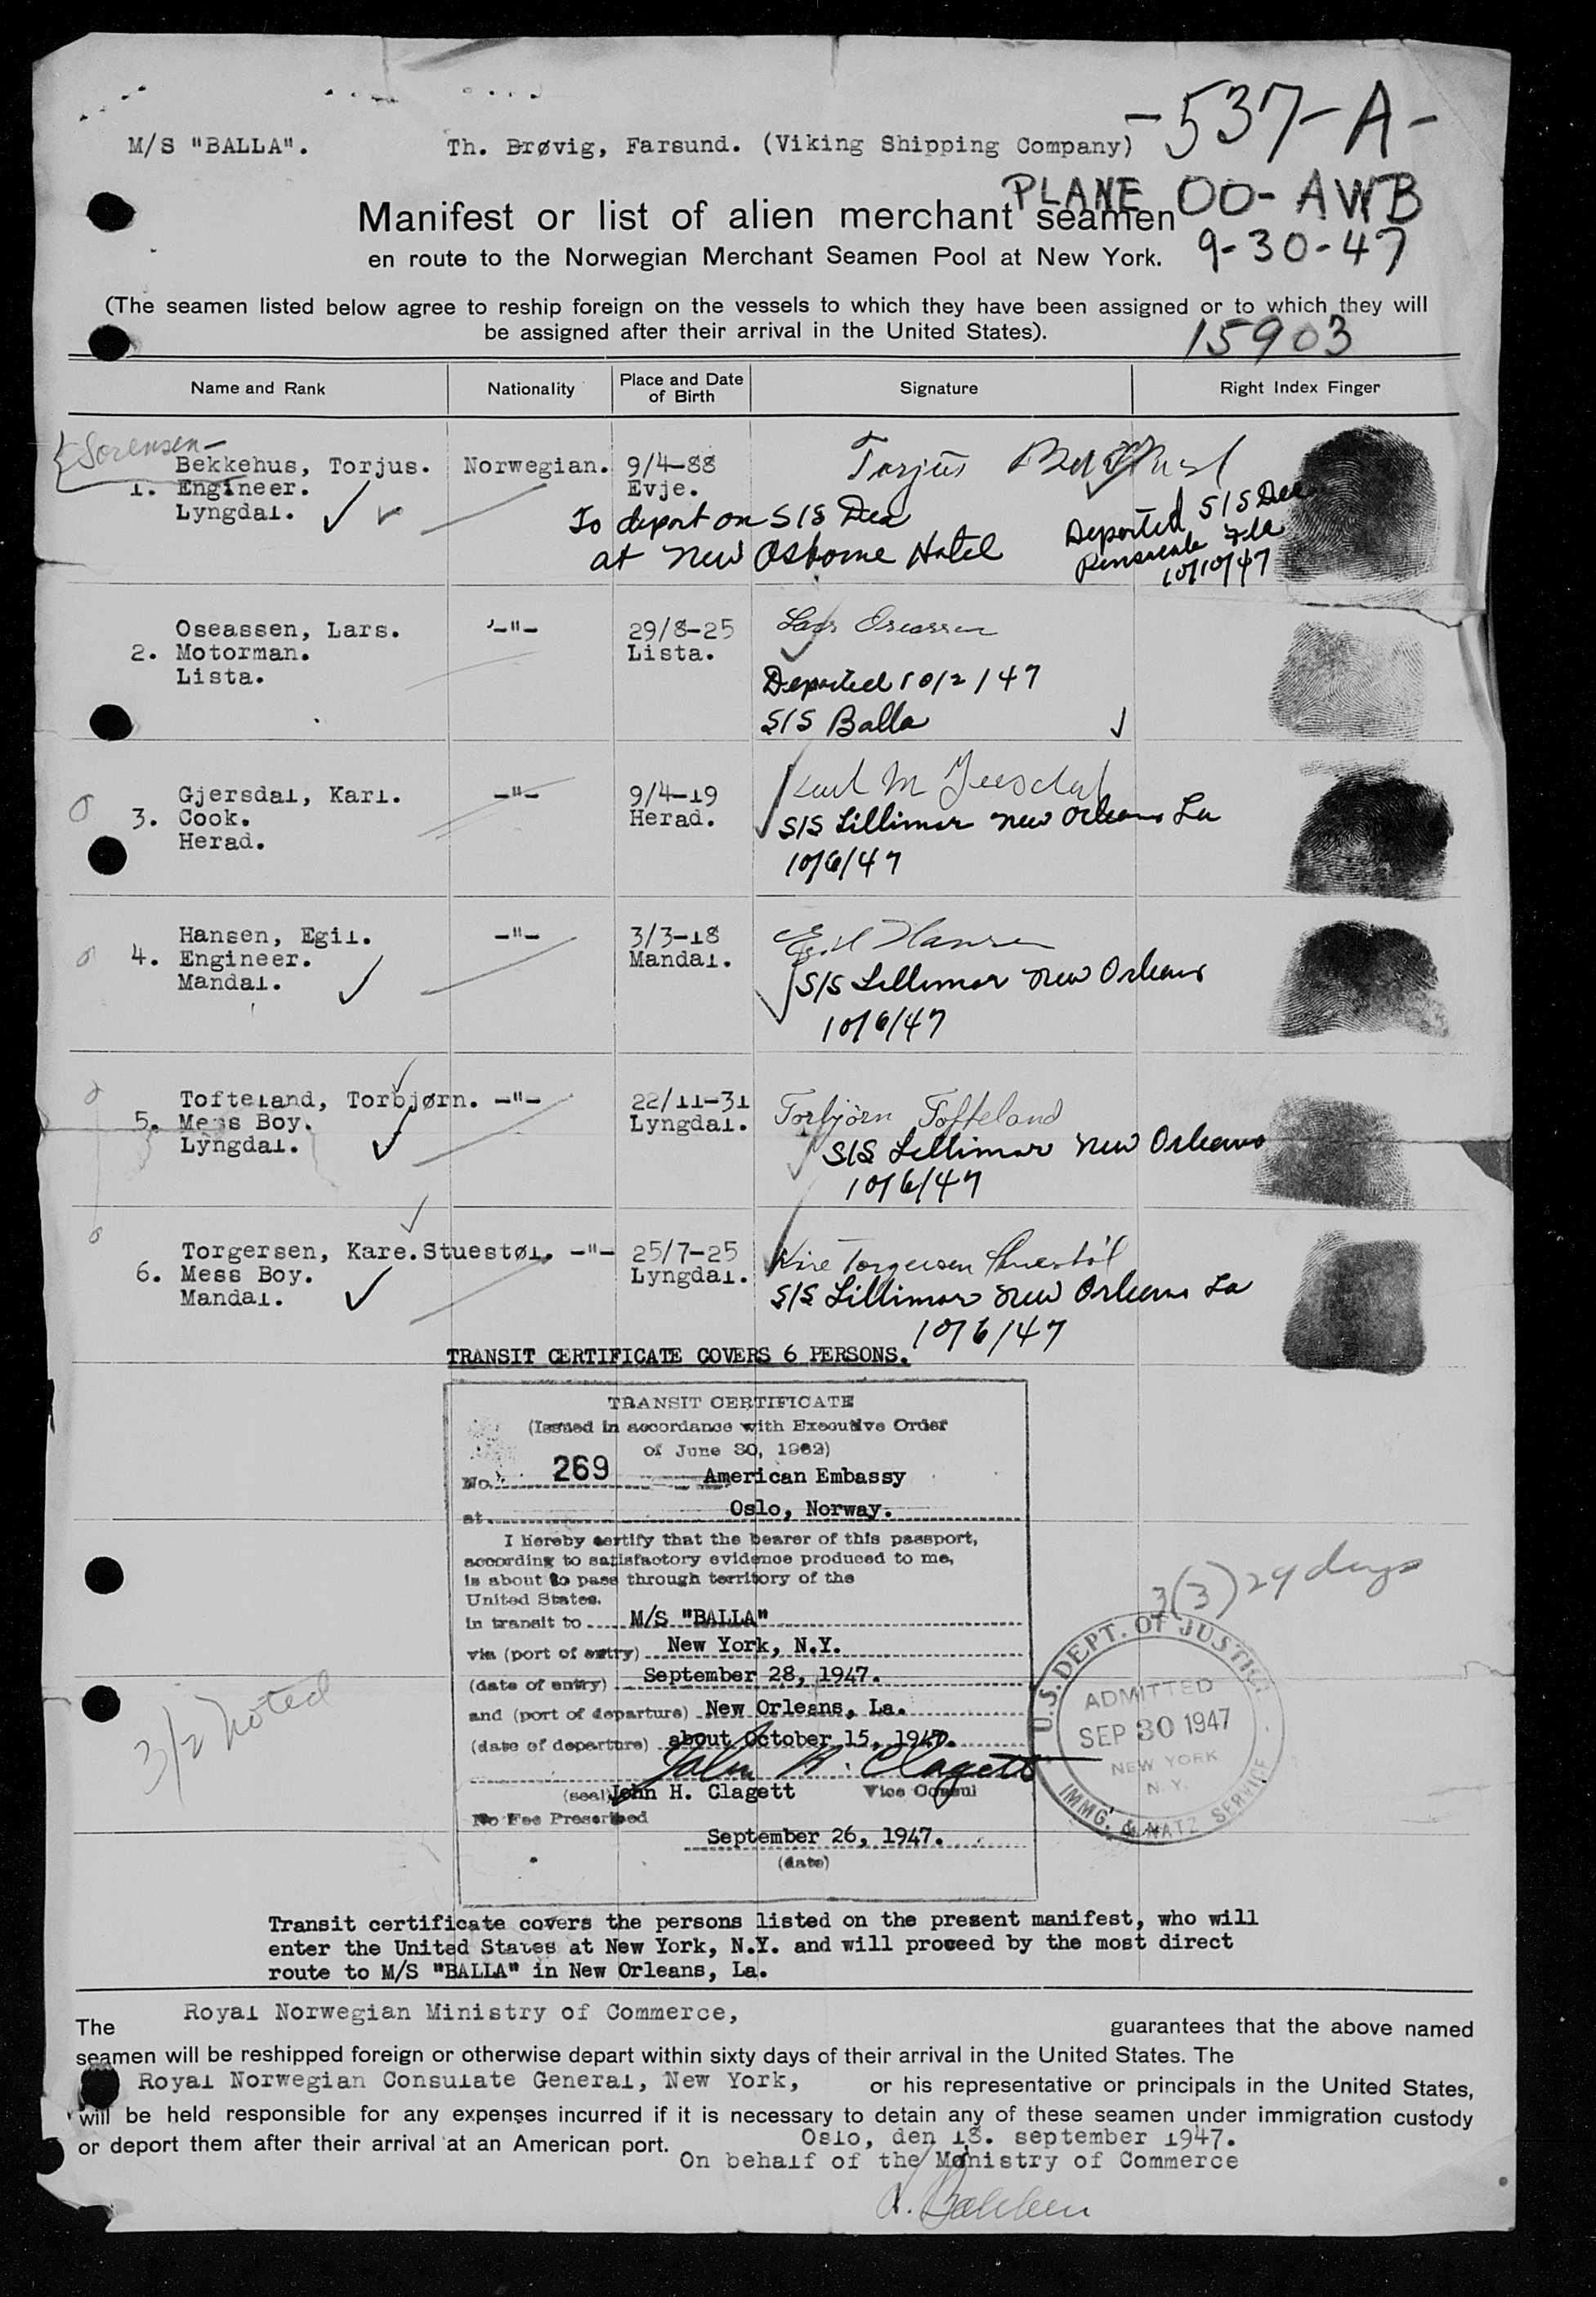 -537-A-
M/S "BALLA". Th. Brøvig, Farsund. (Viking Shipping Company)
PLANE OO-AWB
Manifest or list of alien merchant seamen
9-30-47
en route to the Norwegian Merchant Seamen Pool at New York.
(The seamen listed below agree to reship foreign on the vessels to which they have been assigned or to which they will
be assigned after their arrival in the United States).
15903
Name and Rank Nationality Place and Date of Birth Signature Right Index Finger
Sorensen-
Bekkehus, Torjus. Norwegian. 9/4-88 Torjus
1. Engineer. Evje.
Lyngdal.
To depart on S/S Dea
at New Osborne Hotel
Departed S/S Dea
Pensacola Fla
10/10/47
Oseassen, Lars. -"- 29/8-25 Lars Oseassen
2. Motorman. Lista.
Lista.
Departed 10/2/47
S/S Balla
Gjersdal, Karl. -"- 9/4-19 Karl M Gjersdal
3. Cook. Herad. S/S Lillimor New Orleans La
Herad.
10/6/47
Hansen, Egil. -"- 3/3-18 Egil Hansen
4. Engineer. Mandal.
Mandal. S/S Lillimor New Orleans
10/6/47
Tofteland, Torbjørn. -"- 22/11-31 Torbjörn Tofteland
5. Mess Boy. Lyngdal.
Lyngdal. S/S Lillimor New Orleans
10/6/47
Torgersen, Kare.Stuestøl. -"- 25/7-25 Kåre Torgersen Stuestøl
6. Mess Boy. Lyngdal.
Mandal. S/S Lillimor New Orleans La
10/6/47
TRANSIT CERTIFICATE COVERS 6 PERSONS.
TRANSIT CERTIFICATE
(Issued in accordance with Executive Order
of June 30, 1932)
No. 269 American Embassy
at Oslo, Norway.
I hereby certify that the bearer of this passport,
according to satisfactory evidence produced to me,
is about to pass through territory of the
United States.
in transit to M/S "BALLA"
via (port of entry) New York, N.Y.
(date of entry) September 28, 1947.
and (port of departure) New Orleans, La.
(date of departure) about October 15, 1947.
John H. Clagett
(seal) John H. Clagett Vice Consul
No Fee Prescribed
September 26, 1947.
(date)
3(3) 29 days
U.S. DEPT. OF JUSTICE
ADMITTED
SEP 30 1947
NEW YORK
N.Y.
IMMG. & NATZ SERVICE
3/2 noted
Transit certificate covers the persons listed on the present manifest, who will
enter the United States at New York, N.Y. and will proceed by the most direct
route to M/S "BALLA" in New Orleans, La.
The Royal Norwegian Ministry of Commerce, guarantees that the above named
seamen will be reshipped foreign or otherwise depart within sixty days of their arrival in the United States. The
Royal Norwegian Consulate General, New York, or his representative or principals in the United States,
will be held responsible for any expenses incurred if it is necessary to detain any of these seamen under immigration custody
or deport them after their arrival at an American port.
Oslo, den 18. september 1947.
On behalf of the Ministry of Commerce